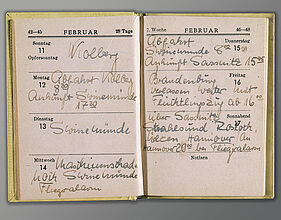 42—45 FEBRUAR 28 Tage
Sonntag
11
Opfersonntag
Kolberg
Montag
12
Abfahrt Kolberg
Ankunft Swinemünde
1730
Dienstag
13
Swinemünde
Mittwoch
14
nach Swinemünde
Fliegeralarm
7. Woche FEBRUAR 46—48
Donnerstag
15
Abfahrt
Swinemünde 8
Ankunft Sassnitz
Freitag
16
Brandenburg
verlassen weiter mit
Flüchtlingszug ab 16
Sonnabend
über Sassnitz
Stralsund Rostock,
Hannover
Hannover 20 bei Fliegeralarm
Notizen